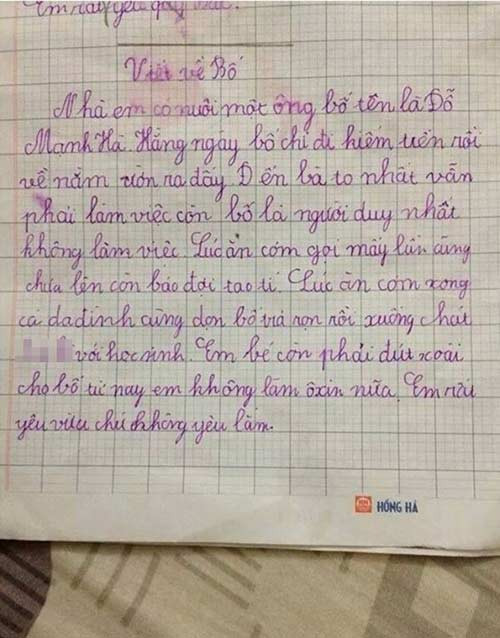 Em rất yêu quý
Viết về Bố
Nhà em có nuôi một ông bố tên là Đỗ
Mạnh Hà. Hằng ngày bố chỉ đi kiếm tiền rồi
về nằm ườn ra đấy. Đến bà to nhất vẫn
phải làm việc còn bố là người duy nhất
không làm việc. Lúc ăn cơm gọi mấy lần cũng
chưa lên còn bảo đợi tao tí. Lúc ăn cơm xong
cả da đình cùng dọn bố vừa rọn rồi xuống chat
với học sinh. Em bé còn phải đút xoài
cho bố từ nay em không làm ôxin nữa. Em rất
yêu vừa chứ không yêu lắm.
HỒNG HÀ